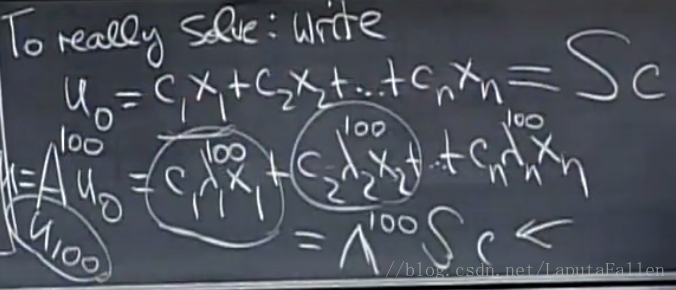 To really solve: write
u₀ = c₁x₁ + c₂x₂ + ... + cₙxₙ = Sc
= A¹⁰⁰u₀ = c₁λ₁¹⁰⁰x₁ + c₂λ₂¹⁰⁰x₂ + ... + cₙλₙ¹⁰⁰xₙ
u₁₀₀
= Λ¹⁰⁰Sc ←
//blog.csdn.net/LaputaFallen